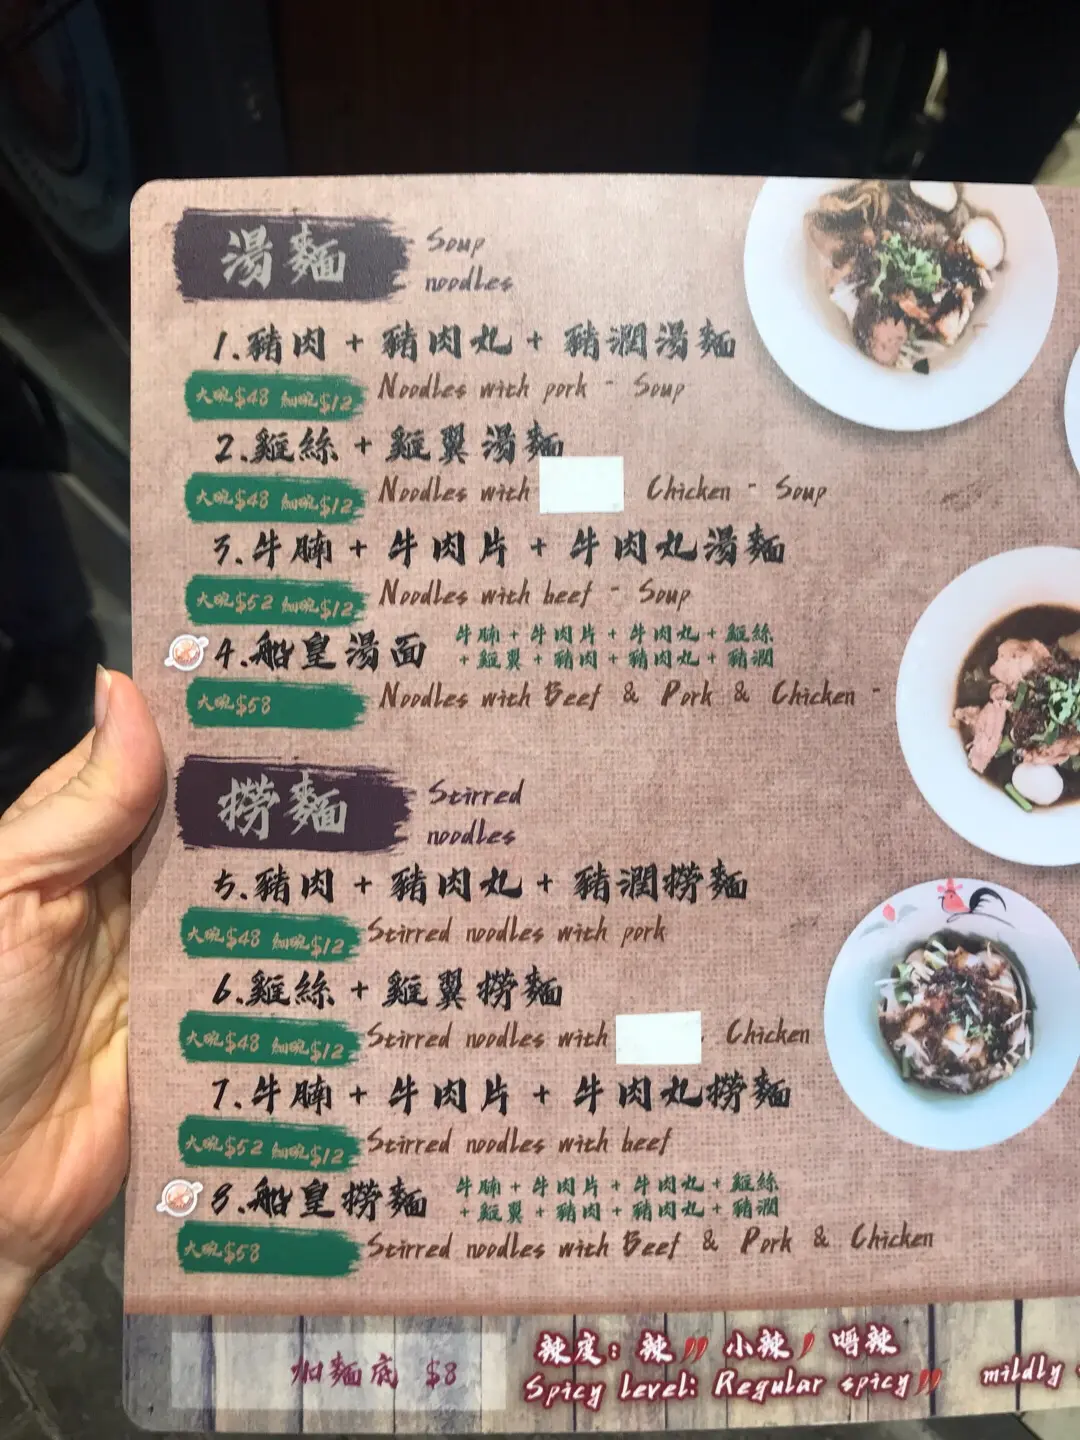 湯麵
Soup
noodles
1.豬肉 + 豬肉丸 + 豬潤湯麵
大碗$48 細碗$12
Noodles with pork - Soup
2.雞絲 + 雞翼湯麵
大碗$48 細碗$12
Noodles with Chicken - Soup
3.牛腩 + 牛肉片 + 牛肉丸湯麵
大碗$52 細碗$12
Noodles with beef - Soup
4.船皇湯面
牛腩 + 牛肉片 + 牛肉丸 + 雞絲
+ 雞翼 + 豬肉 + 豬肉丸 + 豬潤
大碗$58
Noodles with Beef & Pork & Chicken -
撈麵
Stirred
noodles
5.豬肉 + 豬肉丸 + 豬潤撈麵
大碗$48 細碗$12
Stirred noodles with pork
6.雞絲 + 雞翼撈麵
大碗$48 細碗$12
Stirred noodles with Chicken
7.牛腩 + 牛肉片 + 牛肉丸撈麵
大碗$52 細碗$12
Stirred noodles with beef
8.船皇撈麵
牛腩 + 牛肉片 + 牛肉丸 + 雞絲
+ 雞翼 + 豬肉 + 豬肉丸 + 豬潤
大碗$58
Stirred noodles with Beef & Pork & Chicken
加麵底 $8
辣度: 辣 小辣 唔辣
Spicy level: Regular spicy mildly